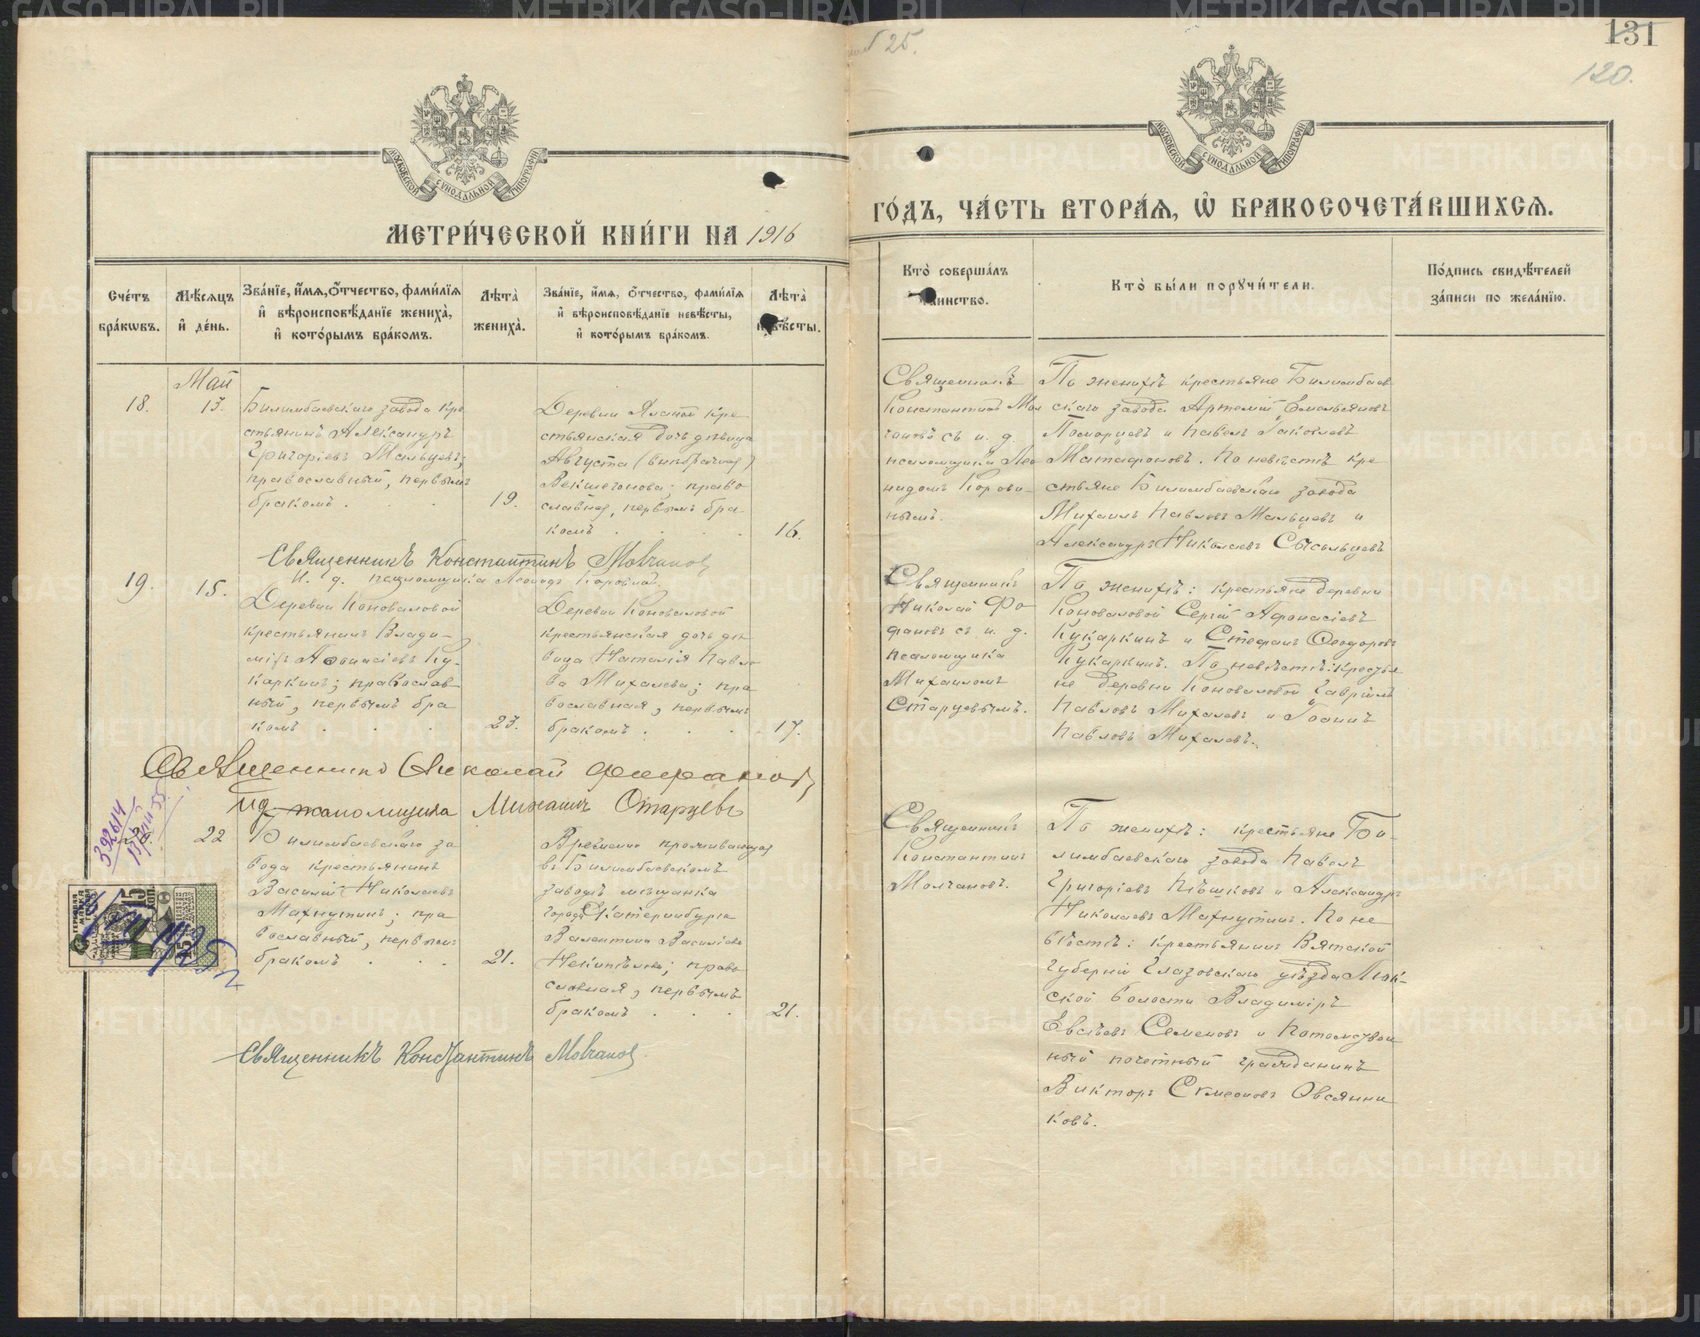 131
120.
МЕТРИ́ЧЕСКОЙ КНИ́ГИ НА 1916
ГО́ДЪ, ЧА́СТЬ ВТОРА́Я, Ѡ БРАКОСОЧЕТА́ВШИХСЯ.
Сче́тъ бра́кѡвъ.
Мѣ́сяцъ и҆ де́нь.
Зва́нїе, и҆́мя, ѻ҆́тчество, фами́лїя
и҆ вѣроисповѣ́данїе жениха̀,
и҆ кото́рымъ бра́комъ.
Лѣ́та̀ жениха̀.
Зва́нїе, и҆́мя, ѻ҆́тчество, фами́лїя
и҆ вѣроисповѣ́данїе невѣ́сты,
и҆ кото́рымъ бра́комъ.
Лѣ́та̀ невѣ́сты.
Кто̀ соверша́лъ таинство.
Кто̀ бы́ли порꙋчи́тели.
По́дпись свидѣ́телей
за́писи по жела́нїю.
Май
18.
13.
Билимбаевскаго завода кре
стьянинъ Александръ
Григоріевъ Мальцевъ;
православный, первымъ
бракомъ . . .
19.
Деревни
кре
стьянская дочь девица
Августа (внебрачная)
право
славная, первымъ бра
комъ . . .
16.
Священникъ
Константинъ Мол
чановъ съ и. д.
псаломщика Лео
нидомъ Корови-
нымъ.
По женихѣ крестьяне Билимбаев
скаго завода Артемій Емельяновъ
и Павелъ Іаковлевъ
Матафоновъ. По невѣстѣ кре
стьяне Билимбаевскаго завода
Михаилъ Павловъ Мальцевъ и
Александръ Николаевъ Сысольцевъ
Священникъ Константинъ Молчановъ
И. д. псаломщика Леонидъ Коровинъ.
19.
15.
Деревни Коноваловой
крестьянинъ Влади-
міръ Афонасіевъ Ку-
каркинъ; православ
ный, первымъ бра
комъ . . .
23.
Деревни Коноваловой
крестьянская дочь де
вица Наталія Павло
ва Михалева; пра
вославная, первымъ
бракомъ . . .
17.
Священникъ
Николай Фо
фановъ съ и. д.
псаломщика
Михаиломъ
Старцевымъ.
По женихѣ: крестьяне деревни
Коноваловой Сергій Афонасіевъ
Кукаркинъ и Стефанъ Ѳеодоровъ
Кукаркинъ. По невѣстѣ: крестья
не деревни Коноваловой Гавріилъ
Павловъ Михалевъ и Іоаннъ
Павловъ Михалевъ.
Священникъ Николай Фофановъ
Ид псаломщика Михаилъ Старцевъ
22
Билимбаевскаго за
вода крестьянинъ
Василій Николаевъ
Махнутинъ; пра
вославный, первымъ
бракомъ . . .
21.
Временно проживающая
въ Билимбаевскомъ
заводѣ мѣщанка
города Екатеринбурга
Валентина Василіева
Некипѣлова; право
славная, первымъ
бракомъ . . .
21.
Священникъ
Константинъ
Молчановъ.
По женихѣ: крестьяне Би-
лимбаевскаго завода Павелъ
Григоріевъ Пѣшковъ и Александръ
Николаевъ Махнутинъ. По не
вѣстѣ: крестьянинъ Вятской
губерніи Глазовскаго уѣзда
ской волости Владиміръ
Евсѣевъ Семеновъ и Потомствен
ный почетный гражданинъ
Викторъ Симеоновъ Овсянни
ковъ.
Священникъ Константинъ Молчановъ.